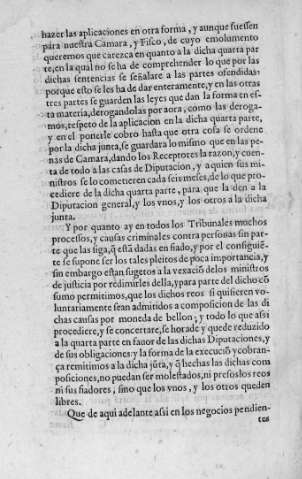 hazer las aplicaciones en otra forma, y aunque fuessen
para nuestra Camara, y Fisco, de cuyo emolumento
queremos que carezca en quanto a la dicha quarta par
te, en la qual no se ha de comprehender lo que por las
dichas sentencias se señalare a las partes ofendidas:
porque esto se les ha de dar enteramente, y en las otras
tres partes se guarden las leyes que dan la forma en es-
ta materia, derogandolas por aora, como las deroga-
mos, respeto de la aplicacion en la dicha quarta parte,
y en el ponerle cobro hasta que otra cosa se ordene
por la dicha junta, se guardara lo mismo que en las pe-
nas de Camara, dando los Receptores la razon, y cuen-
ta de todo a las casas de Diputacion, y a quien sus mi-
nistros se lo cometieren cada seis meses, de lo que pro-
cediere de la dicha quarta parte, para que la den a la
Diputacion general, y los vnos, y los otros a la dicha
junta.
Y por quanto ay en todos los Tribunales muchos
processos, y causas criminales contra personas sin par-
te que las siga, q̃ està dadas en fiado, y por el consiguiẽ-
te se supone ser los tales pleitos de poca importancia, y
sin embargo estan sugetos a la vexaciõ de los ministros
de justicia por redimirles della, y para parte del dicho cõ
sumo permitimos, que los dichos reos si quisieren vo-
luntariamente sean admitidos a composicion de las di
chas causas por moneda de bellon; y todo lo que assi
procediere, y se concertare, se horade y quede reduzido
a la quarta parte en fauor de las dichas Diputaciones, y
de sus obligaciones: y la forma de la execuciõ y cobran-
ça remitimos a la dicha jũta, y q̃ hechas las dichas com
posiciones, no puedan ser molestados, ni presos los reos
ni sus fiadores, sino que los vnos, y los otros queden
libres.
Que de aqui adelante assi en los negocios pendien-
tes